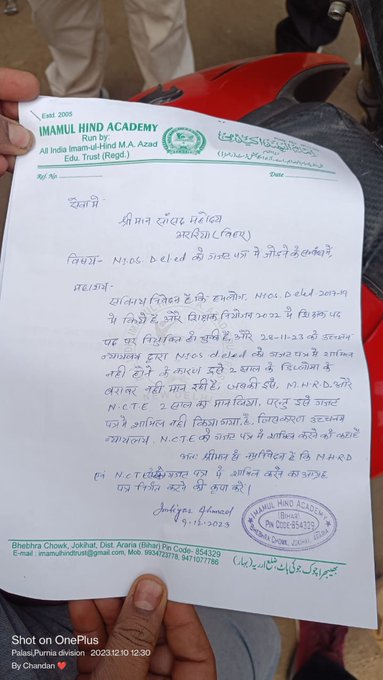 Estd. 2005
IMAMUL HIND ACADEMY
Run by:
All India Imam-ul-Hind M.A. Azad
Edu. Trust (Regd.)
Ref. No.
Date
सेवा में
श्री मान सांसद महोदय
अररिया (बिहार)
विषय:- N.I.O.S. D.el.ed को गजट पत्र में जोड़ने के संबंध में,
महाशय,
सविनय निवेदन है कि हमलोग, N.I.O.S. D.el.ed 2017-19
में किये है, और शिक्षक नियोजन 2022 में शिक्षक पद
पद पर नियुक्ति हो चुकी है, और 28-11-23 को उच्चतम
न्यायालय द्वारा N.I.O.S d.el.ed को गजट पत्र में शामिल
नहीं होने के कारण इसे 2 साल के डिप्लोमा के
बराबर नहीं मान रही है, जबकी इसे M.H.R.D. और
N.C.T.E 2 साल का मान लिया, परन्तु इसे गजट
पत्र में शामिल नहीं किया गया है, जिस कारण उच्चतम
न्यायालय, N.C.T.E को गजट पत्र में शामिल करने को कहा है
अतः श्रीमान से नम्र निवेदन है कि M.H.R.D
एवं N.C.T.E गजट पत्र में शामिल करने का आग्रह
पत्र निर्गत करने की कृपा करें।
Imtiyaz Ahmad
9-12-2023
IMAMUL HIND ACADEMY
(BIHAR)
PIN CODE-854329
BHEBHRA CHOWK, JOKIHAT, ARARIA
Bhebhra Chowk, Jokihat, Dist. Araria (Bihar) Pin Code- 854329
E-mail : imamulhindtrust@gmail.com, Mob. 9934723778, 9471077786
بھیبھرا چوک جوکی ہاٹ ضلع ارریہ (بہار)
Shot on OnePlus
Palasi,Purnia division 2023.12.10 12:30
By Chandan ❤️